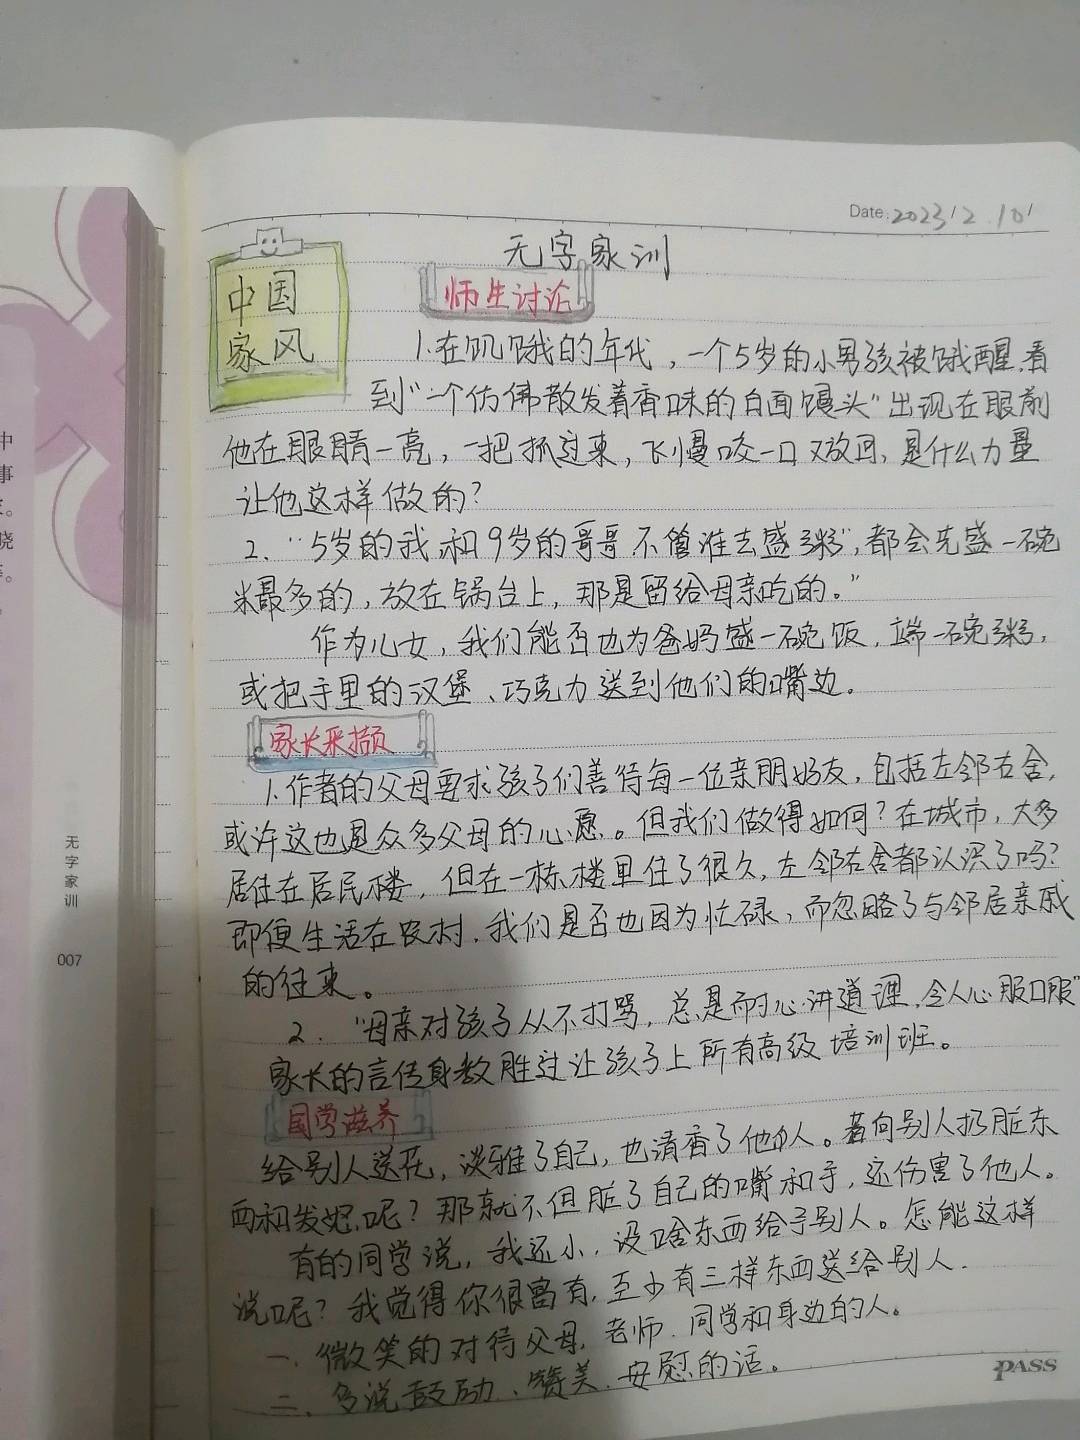 Date: 2023/2.10/
无字家训
中国
家风
师生讨论
1.在饥饿的年代，一个5岁的小男孩被饿醒，看
到"一个仿佛散发着香味的白面馒头"出现在眼前
他在眼睛一亮，一把抓过来，飞慢咬一口又放回，是什么力量
让他这样做的？
2."5岁的我，和9岁的哥哥不管谁去盛粥"，都会先盛一碗
米最多的，放在锅台上，那是留给母亲吃的。"
作为儿女，我们能否也为爸妈盛一碗饭，端一碗粥，
或把手里的汉堡、巧克力送到他们的嘴边。
家长采撷
1.作者的父母要求孩子们善待每一位亲朋好友，包括左邻右舍，
或许这也是众多父母的心愿。但我们做得如何？在城市，大多
居住在居民楼，但在一栋楼里住了很久，左邻右舍都认识了吗？
即便生活在农村，我们是否也因为忙碌，而忽略了与邻居亲戚
的往来。
2."母亲对孩子从不打骂，总是耐心讲道理，令人心服口服"
家长的言传身教胜过让孩子上所有高级培训班。
国学滋养
给别人送花，淡雅了自己，也清香了他人。若向别人扔脏东
西和发怒呢？那就不但脏了自己的嘴和手，还伤害了他人。
有的同学说，我还小，没啥东西给予别人。怎能这样
说呢？我觉得你很富有，至少有三样东西送给别人.
一、微笑的对待父母，老师、同学和身边的人。
二、多说鼓励、赞美、安慰的话。
PASS
中
事
。
晓
。
无字家训
007